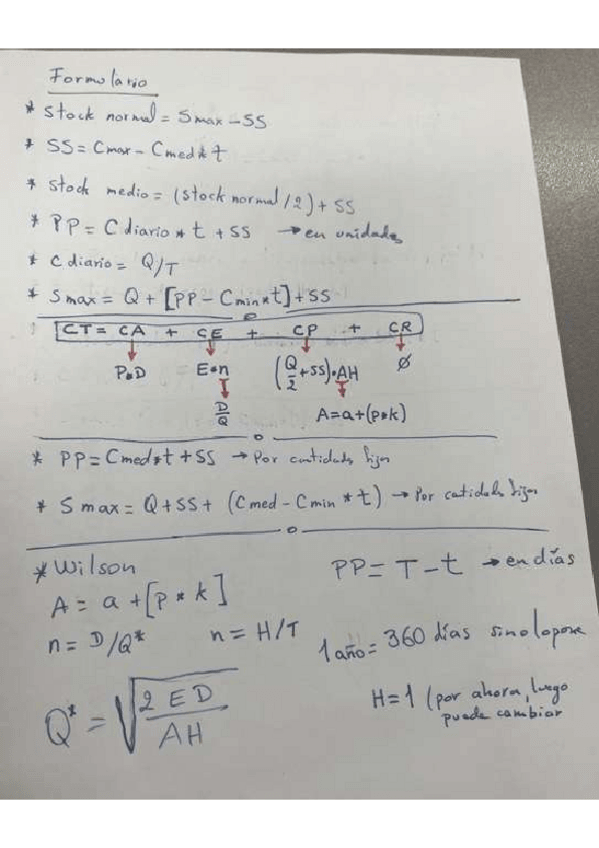 Formulario
* Stock normal = Smax - SS
* SS = Cmax - Cmed * t
* Stock medio = (stock normal / 2) + SS
* PP = C diario * t + SS → en unidades
* C diario = Q/T
* S max = Q + [PP - Cmin * t] + SS
CT = CA + CE + CP + CR
P*D E*n (Q/2 + SS)*AH Ø
D/Q A = a + (p*k)
* PP = Cmed*t + SS → Por cantidades fijas
* S max = Q + SS + (Cmed - Cmin * t) → Por catidades fijas
* Wilson
PP = T - t → en días
A = a + [P * k]
n = D/Q* n = H/T
1 año = 360 días sino lo pone
Q* = √(2 E D / AH)
H = 1 (por ahora, luego
puede cambiar